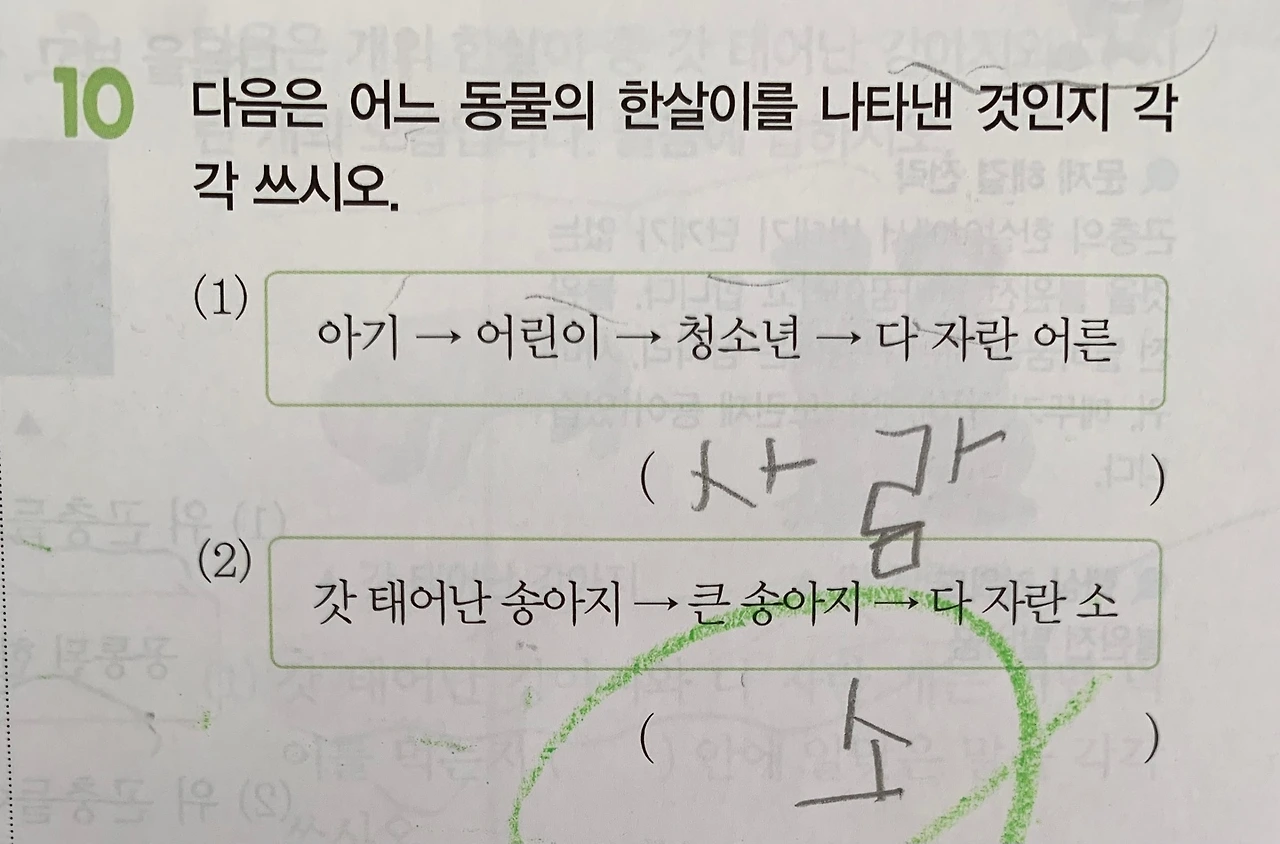 10 다음은 어느 동물의 한살이를 나타낸 것인지 각
각 쓰시오.
(1) 아기 → 어린이 → 청소년 → 다 자란 어른
( 사람 )
(2) 갓 태어난 송아지 → 큰 송아지 → 다 자란 소
( 소 )